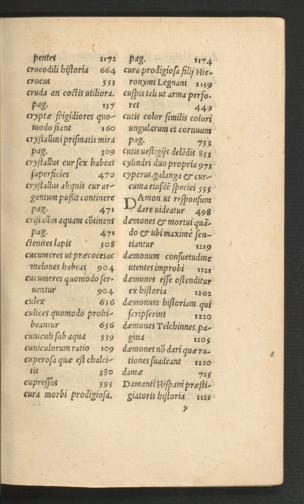 pentes 1172
crocodili historia 664
crocus 553
cruda an coctis utiliora.
pag. 137
cryptæ frigidiores quo-
modo fiant 160
crystallini prismatis mira
pag. 309
crystallus cur sex habeat
superficies 470
crystallus aliquis cur ar-
gentum possit continere
pag. 471
cristallus aquam cōtinens
pag. 471
ctenites lapis 508
cucumeres ut præcoces ac
melones habeas 904
cucumeres quomodo ser-
uentur 904
culex 656
culices quomodo prohi-
beantur 656
cuniculi sub aqua 339
cuniculorum ratio 109
cuperosa quæ est chalci-
tis 380
cupressus 595
cura morbi prodigiosa.
pag. 1174
cura prodigiosa filij Hie-
ronymi Legnani 1159
cuspis teli ut arma perfo-
ret 449
cutis color similis colori
ungularum et cornuum
pag. 753
cutis uestigijs delēdis 853
cylindri duo propria 973
cyperus, galanga & cur-
cuma eiusdē speciei 555
Dæmon ut responsum
dare uideatur 498
dæmones & mortui quā-
do & ubi maximè sen-
tiantur 1219
dæmonum consuetudine
utentes improbi 1221
dæmones esse ostenditur
ex historia 1202
dæmonum historiam qui
scripserint 1220
dæmones Telchinnes. pa-
gina 1105
dæmones nō dari quæ ra-
tiones suadeant 1220
damæ 725
Damanti Hispani præsti-
giatoris historia 1121
y